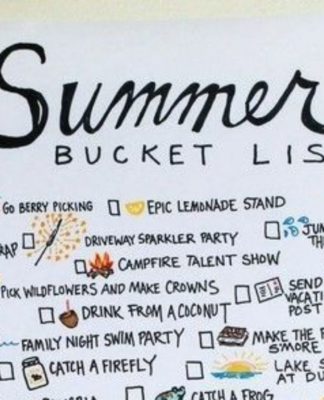 Summer
BUCKET LIS
GO BERRY PICKING EPIC LEMONADE STAND
RAP DRIVEWAY SPARKLER PARTY JUM
TH
CAMPFIRE TALENT SHOW
PICK WILDFLOWERS AND MAKE CROWNS SEND
VACATI
POST
DRINK FROM A COCONUT
FAMILY NIGHT SWIM PARTY MAKE THE P
S'MORE
CATCH A FIREFLY LAKE S
AT DU
CATCH A FROG